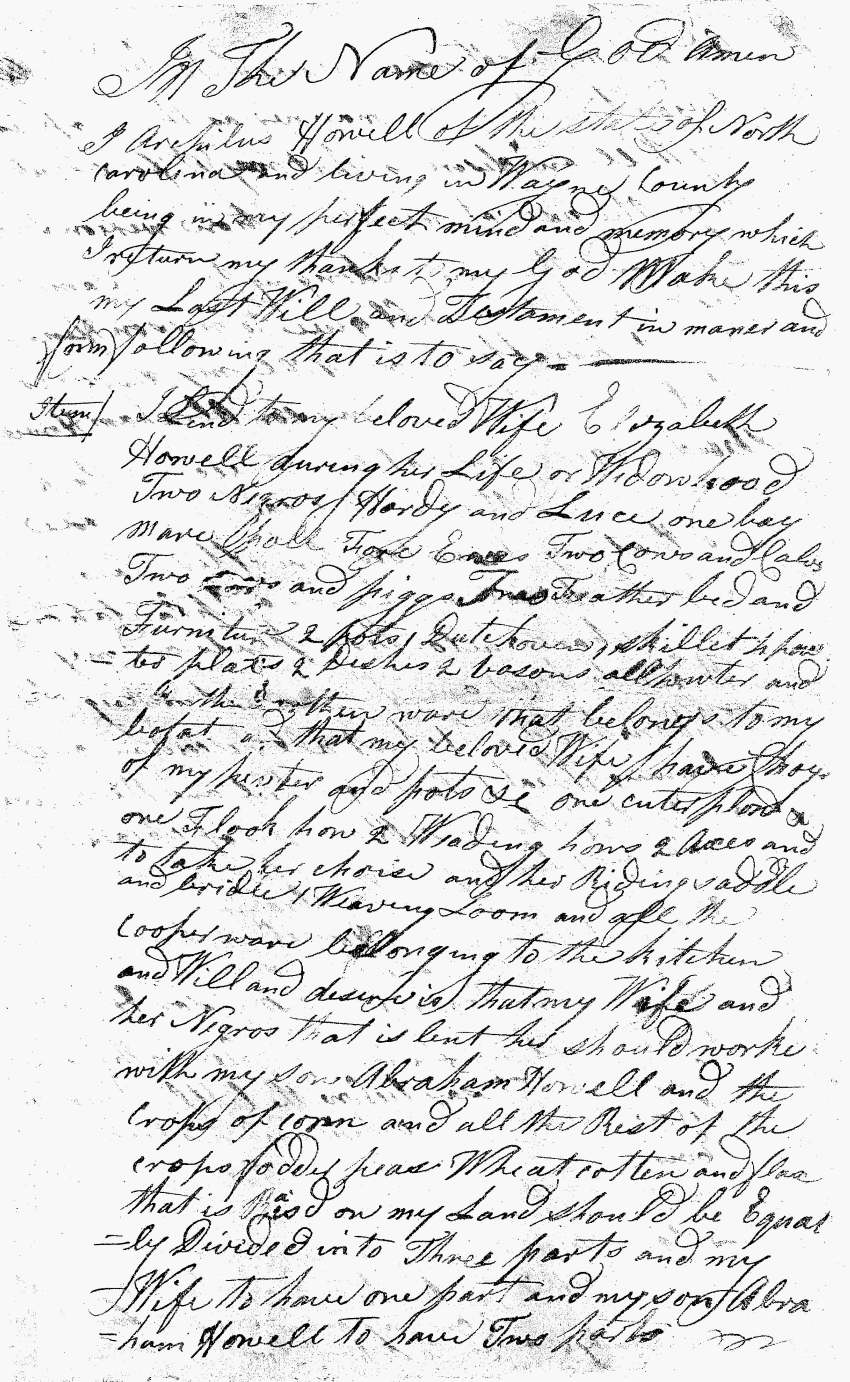 In The Name of God Amen
I Arcfulus Howell of the state of North
Carolina and living in Wayne County
being in my perfect mind and memory which
I return my thanks to my God Make this
my Last Will and Testament in maner and
form following that is to say
Item I Lend to my beloved Wife Elizabeth
Howell during her Life or Widowhood
Two Negros Hardy and Luce one bay
mare Four Ewes Two Cows and Calves
Two and piggs Feather bed and
Furniture 2 pots 1 Dutchoven 1 skillet
=ter plats 2 Deshes 2 basons all pewter and
ware that belongs to my
bofat and that my beloved Wife have Choys
of my pewter and pots one cuter plow
one Flook how 2 Weading hows 2 Axes and
to take her choise and her Riding saddle
and bridle 1 Weaving Loom and all the
Cooperware bellonging to the kitchen
and Will and desire is that my Wife and
her Negros that is lent her should worke
with my son Abraham Howell and the
Crops of corn and all the Rest of the
crops fodder peas Wheat cotten and flax
that is Raisd on my Land should be Equal
=ly Divided into Three parts and my
Wife to have one part and my son Abra
=ham Howell to have Two parts